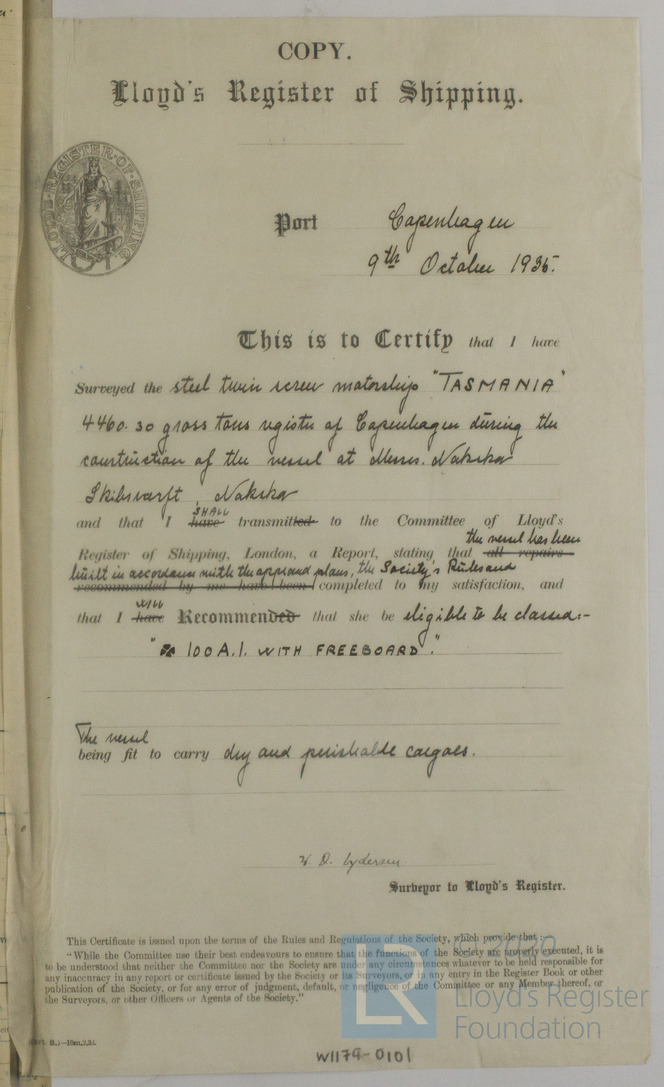 COPY.
Lloyd's Register of Shipping.
LLOYD'S REGISTER OF SHIPPING
Port Copenhagen
9th October 1935.
This is to Certify that I have
Surveyed the steel twin screw motorship "TASMANIA"
4460.30 gross tons register of Copenhagen during the
construction of the vessel at Messrs. Nakskov
Skibsvaerft, Nakskov
SHALL
and that I have transmitted to the Committee of Lloyd's
the vessel has been
Register of Shipping, London, a Report, stating that all repairs
built in accordance with the approved plans, the Society's Rules and
recommended by me have been completed to my satisfaction, and
WILL
that I have Recommended that she be eligible to be classed:-
"✠ 100 A.1. WITH FREEBOARD."
The vessel
being fit to carry dry and perishable cargoes.
Surveyor to Lloyd's Register.
This Certificate is issued upon the terms of the Rules and Regulations of the Society, which provide that :—
"While the Committee use their best endeavours to ensure that the functions of the Society are properly executed, it is
to be understood that neither the Committee nor the Society are under any circumstances whatever to be held responsible for
any inaccuracy in any report or certificate issued by the Society or its Surveyors, or in any entry in the Register Book or other
publication of the Society, or for any error of judgment, default, or negligence of the Committee or any Member thereof, or
the Surveyors, or other Officers or Agents of the Society."
LR
Lloyd's Register
Foundation
W1179-0101